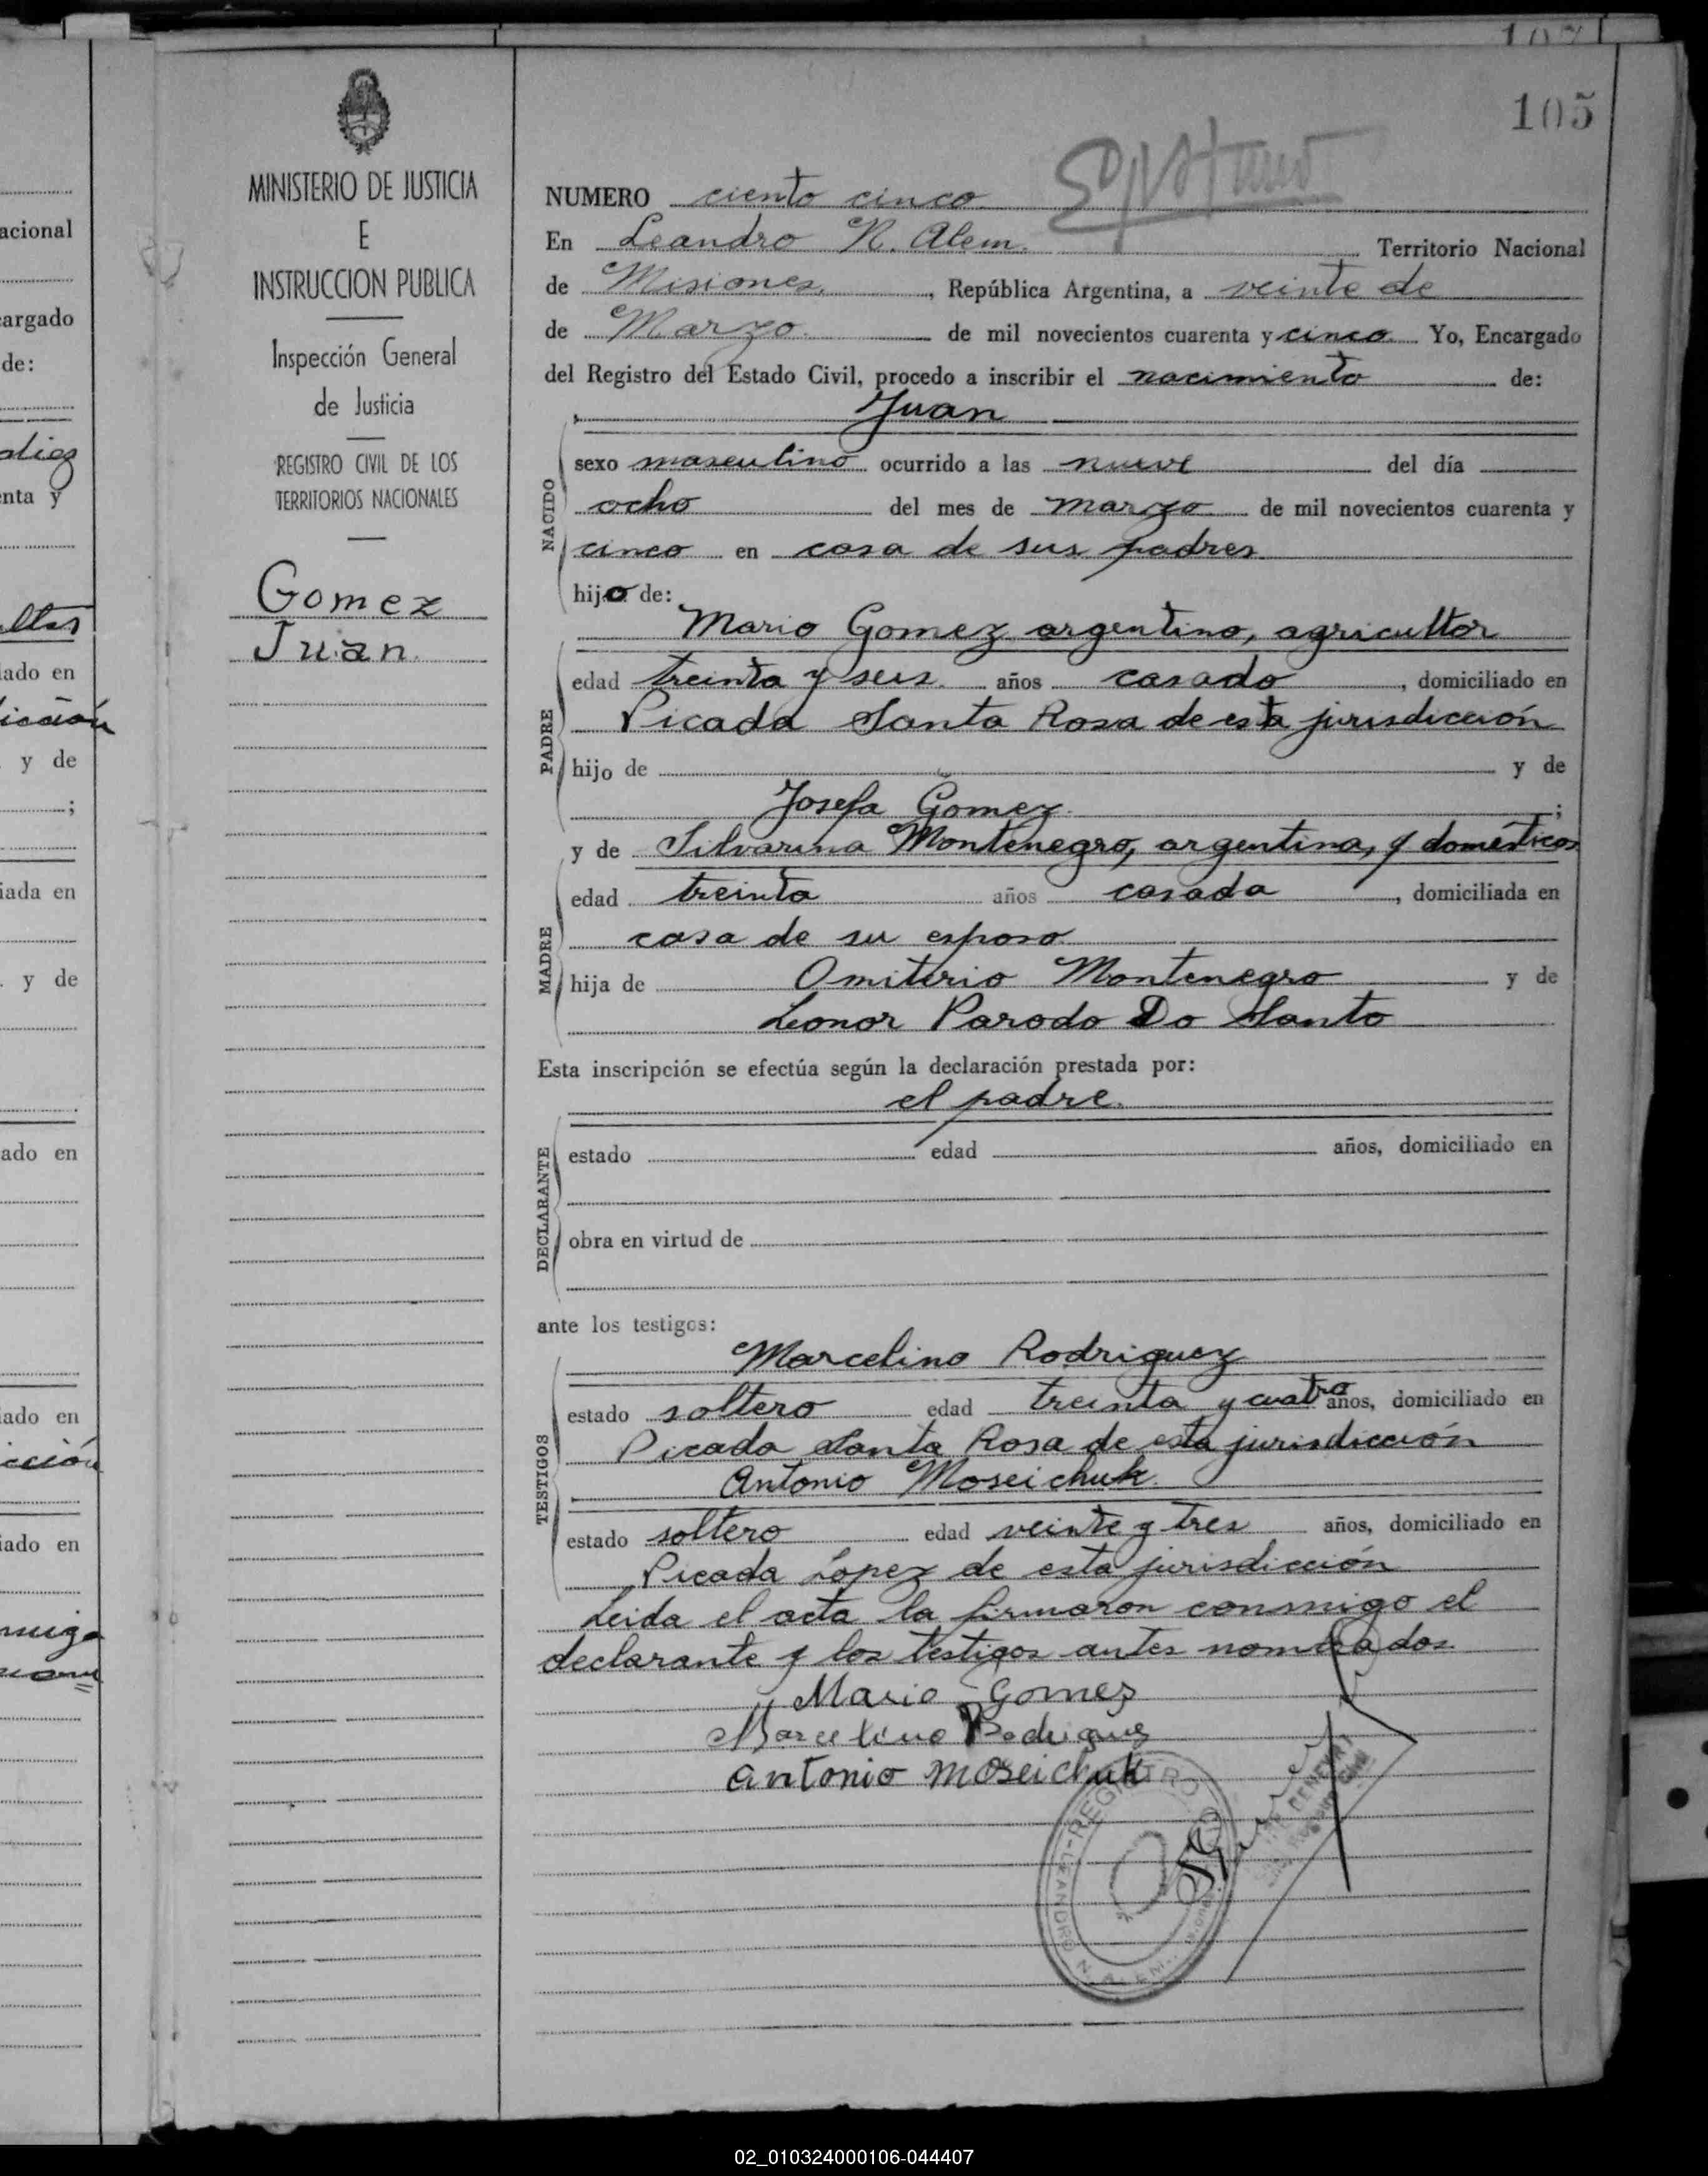 107
105
MINISTERIO DE JUSTICIA
E
INSTRUCCION PUBLICA
Inspección General
de Justicia
REGISTRO CIVIL DE LOS
TERRITORIOS NACIONALES
Gomez
Juan
NUMERO ciento cinco
En Leandro N. Alem. Territorio Nacional
de Misiones, República Argentina, a veinte de
de Marzo de mil novecientos cuarenta y cinco. Yo, Encargado
del Registro del Estado Civil, procedo a inscribir el nacimiento de:
Juan
NACIDO
sexo masculino ocurrido a las nueve del día
ocho del mes de marzo de mil novecientos cuarenta y
cinco en casa de sus padres
hijo de:
Mario Gomez argentino, agricultor
PADRE
edad treinta y seis años casado, domiciliado en
Picada Santa Rosa de esta jurisdicción
hijo de y de
Josefa Gomez ;
y de Silvarina Montenegro, argentina, q domésticos
MADRE
edad treinta años casada, domiciliada en
casa de su esposo
hija de Omiterio Montenegro y de
Leonor Parodo Do Santo
Esta inscripción se efectúa según la declaración prestada por:
el padre.
DECLARANTE
estado edad años, domiciliado en
obra en virtud de
ante los testigos:
Marcelino Rodriguez
TESTIGOS
estado soltero edad treinta y cuatro años, domiciliado en
Picada Santa Rosa de esta jurisdicción
Antonio Moseichuk
estado soltero edad veinte y tres años, domiciliado en
Picada López de esta jurisdicción
Leida el acta la firmaron conmigo el
declarante y los testigos antes nombrados
Mario Gomez
Marcelino Rodriguez
Antonio Moseichuk
REGISTRO
LEANDRO N. ALEM
acional
cargado
de:
enta y
iado en
y de
;
iada en
y de
ado en
iado en
iado en
02_010324000106-044407